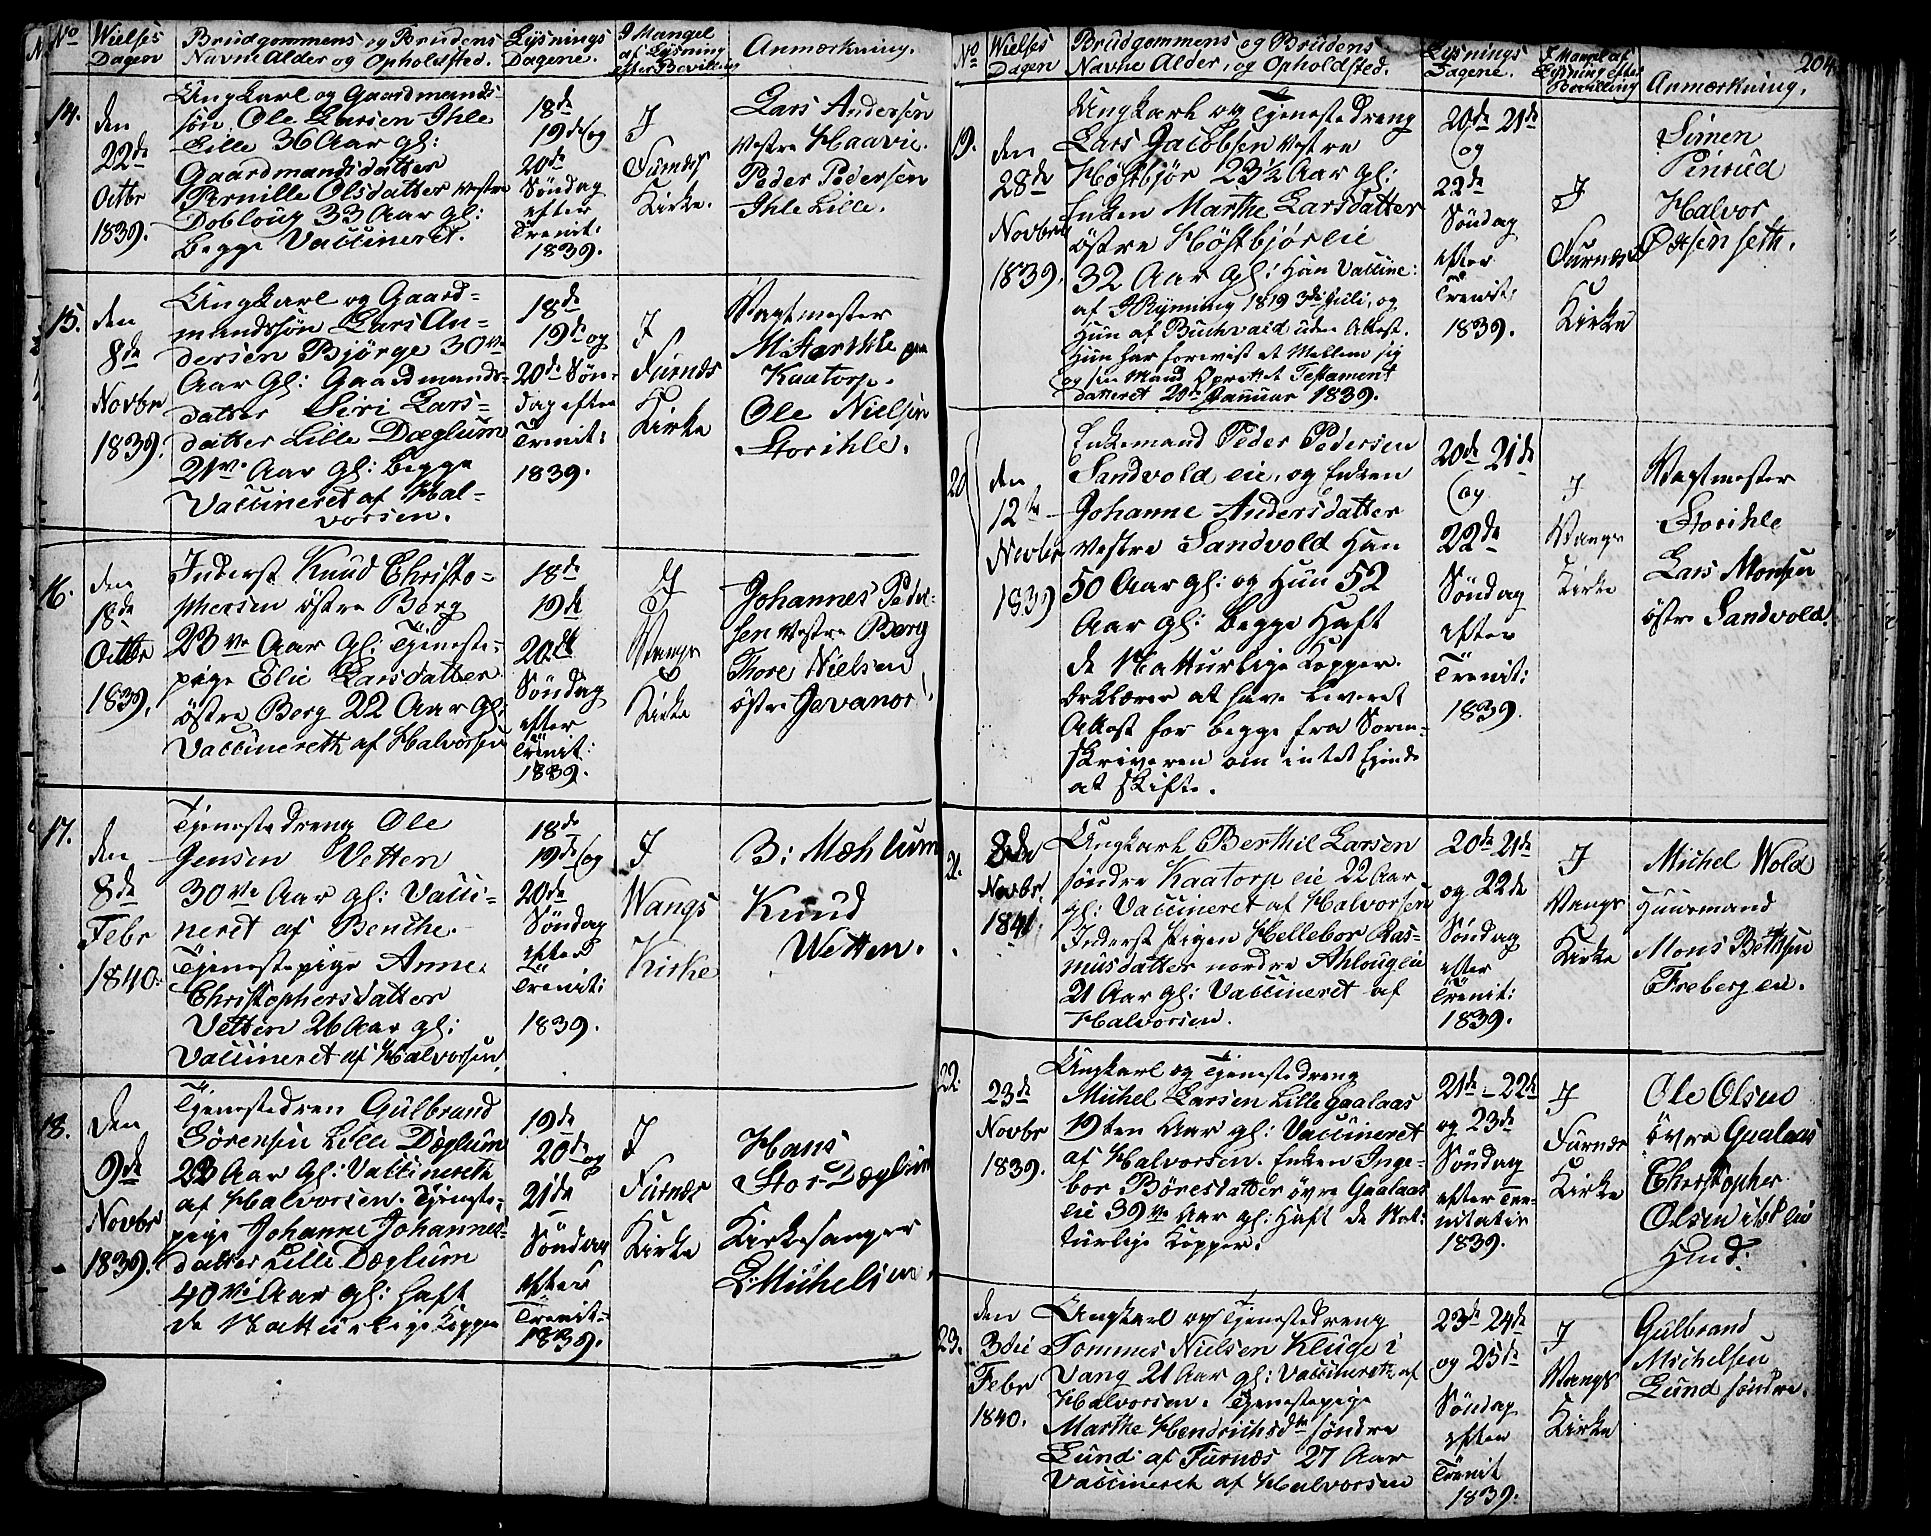 No
Wielses
Dagen
Brudgommens og Brudens
Navne Alder og Opholdsted.
Lysnings
Dagene.
I Mangel
af Lysning
efter Bevilling
Anmærkning.
14.
den
22de
Octbr
1839.
Ungkarl og Gaardmands-
søn Ole Larsen Ihle
Lille 36 Aar gl:
Gaardmandsdatter
Pernille Olsdatter vestre
Dobloug 33 Aar gl:
begge Vaccineret.
18de
19de og
20de
Søndag
efter
Trenit:
1839.
I
Furnæs
Kirke.
Lars Andersen
vestre Haavie.
Peder Pedersen
Ihle Lille.
15.
den
8de
Novbr
1839.
Ungkarl og Gaard-
mandssøn Lars An-
dersen Bjørge 30ve
Aar gl: Gaardmands-
datter Siri Lars-
datter Lille Dæglum
21ve Aar gl: begge
Vaccineret af Hal-
vorsen.
18de
19de og
20de Søn-
dag efter
Trenit:
1839.
I
Furnæs
Kirke
Vagtmester
Storihle
Kaatorp.
Ole Nielsen
Storihle.
16.
den
18de
Octbr
1839.
Inderst Knud Christo-
phersen østre Berg
23ve Aar gl: Tjeneste-
pige Elie Larsdatter
østre Berg 22 Aar gl:
Vaccinereth af Halvorsen
18de
19de
20de
Søndag
efter
Trenit:
1839.
I
Vangs
Kirke
Johannes Peder-
sen vestre Berg
Thore Nielsen
østre Jevanor
17.
den
8de
Febr
1840.
Tjenestedreng Ole
Jensen Vetten
30ve Aar gl: Vacci-
neret af Benche.
Tjenestepige Anne
Christophersdatter
Vetten 26 Aar gl:
Vaccineret af Halvorsen.
18de
19de og
20de
Søndag
efter
Trenit:
1839.
I
Wangs
Kirke
B: Mæhlum
Knud
Wetten.
18.
Den
9de
Novbr
1839.
Tjenestedren Gulbrand
Sørensen Lille Dæglum
23 Aar gl: Vaccinereth
af Halvorsen. Tjeneste-
pige Johanne Johannes-
datter Lille Dæglum
40ve Aar gl: haft
de Natturlige Kopper
19de
20de og
21de
Søndag
efter
Trenit:
1839.
I
Furnæs
Kirke
Hans
Stor-Dæglum
Kirkesanger
L: Michelsen.
204.
No
Wielses
Dagen
Brudgommens og Brudens
Navne Alder, og Opholdsted.
Lysnings
Dagene.
I Mangel af
Lysning efter
Bevilling
Anmærkning.
19.
den
28de
Novbr
1839.
Ungkarl og Tjenestedreng
Lars Jacobsen vestre
Høstbjør 23½ Aar gl:
Enken Marthe Larsdatter
østre Høstbjøreie
32 Aar gl: Han Vaccine:
af Rynning 1819 3de Juli, og
Hun af Buchvald uden Attest.
Hun har forevist et Mellem sig
og sin Mand Oprettet Testament
datteret 20de Januar 1839.
20de 21de
og
22de
Søndag
efter
Trenit:
1839.
I
Furnæs
Kirke
Simen
Penrud
Halvor
20
den
12te
Novbr
1839
Enkemand Peder Pedersen
Sandvold eie, og Enken
Johanne Andersdatter
vestre Sandvold Han
50 Aar gl: og Hun 52
Aar gl: begge Haft
de Natturlige Kopper.
Erklærer at have leveret
Attest for begge fra Soren-
skriveren om intet Eiende
at skifte.
20de 21de
og
22de
Søndag
efter
Trenit:
1839.
I
Vangs
Kirke
Vagtmester
Storihle
Lars Monsen
østre Sandvold.
21.
8de
Novbr
1841.
Ungkarl Berthil Larsen
søndre Kaatorp eie 22 Aar
gl: Vaccineret af Halvorsen
Inderst Pigen Hellebor Ras-
musdatter nordre Ahlougeie
21 Aar gl: Vaccineret af
Halvorsen.
20de 21de
og 22de
Søndag
efter
Trenit:
1839.
I
Vangs
Kirke
Michel Wold
Huusmand
Mons
Freberg eie.
22.
23de
Novbr
1839.
Ungkarl og Tjenestedreng
Michel Larsen Lille Gaalaas
19ten Aar gl: Vaccineret
af Halvorsen. Enken Inge-
bor Børesdatter øvre Gaalaas
eie 39ve Aar gl: Haft de Nat-
turlige Kopper.
21de - 22de
og 23de
Søndag
efter Tre-
nitatis
1839.
I
Furnæs
Kirke
Ole Olsen
øvre Gaalaas
Christopher
Olsen ibd eie
23.
den
3die
Febr
1840.
Ungkarl og Tjenestedreng
Tommes Nielsen Kluge i
Vang 21 Aar gl: Vaccinereth af
Halvorsen. Tjenestepige
Marthe Hendrichsdtr søndre
Lund af Furnæs 27 Aar
Vaccineret af Halvorsen
23de 24de
og 25de
Søndag
efter
Trenit
1839.
I
Vangs
Kirke
Gulbrand
Michelsen
Lund søndre.